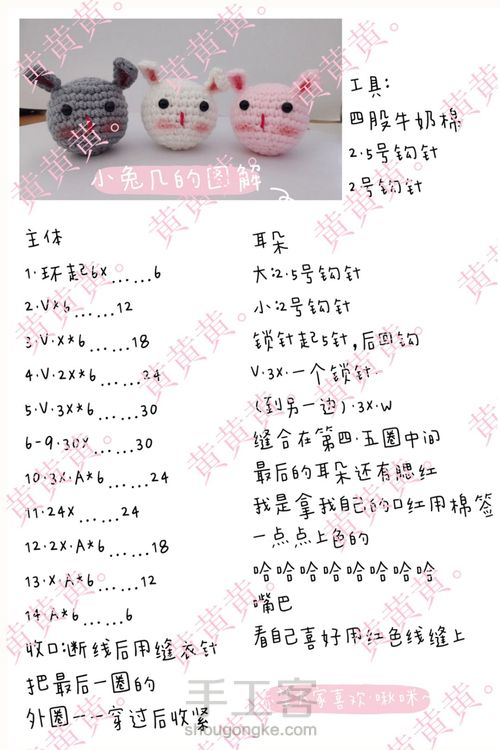 小兔几的图解
工具:
四股牛奶棉
2.5号钩针
2号钩针
主体
1.环起6x......6
2.V*6......12
3.V.X*6......18
4.V.2X*6......24
5.V.3X*6......30
6-9.30X......30
10.3X.A*6......24
11.24X......24
12.2X.A*6......18
13.X.A*6......12
14.A*6......6
收口:断线后用缝衣针
把最后一圈的
外圈一一穿过后收紧
耳朵
大:2.5号钩针
小:2号钩针
锁针起5针,后回钩
V.3X.一个锁针.
(到另一边).3X.W
缝合在第四.五圈中间
最后的耳朵还有腮红
我是拿我自己的口红用棉签
一点点上色的
哈哈哈哈哈哈哈哈
嘴巴
看自己喜好用红色线缝上
家喜欢.啾咪~
黄黄黄。
手工客
shougongke.com